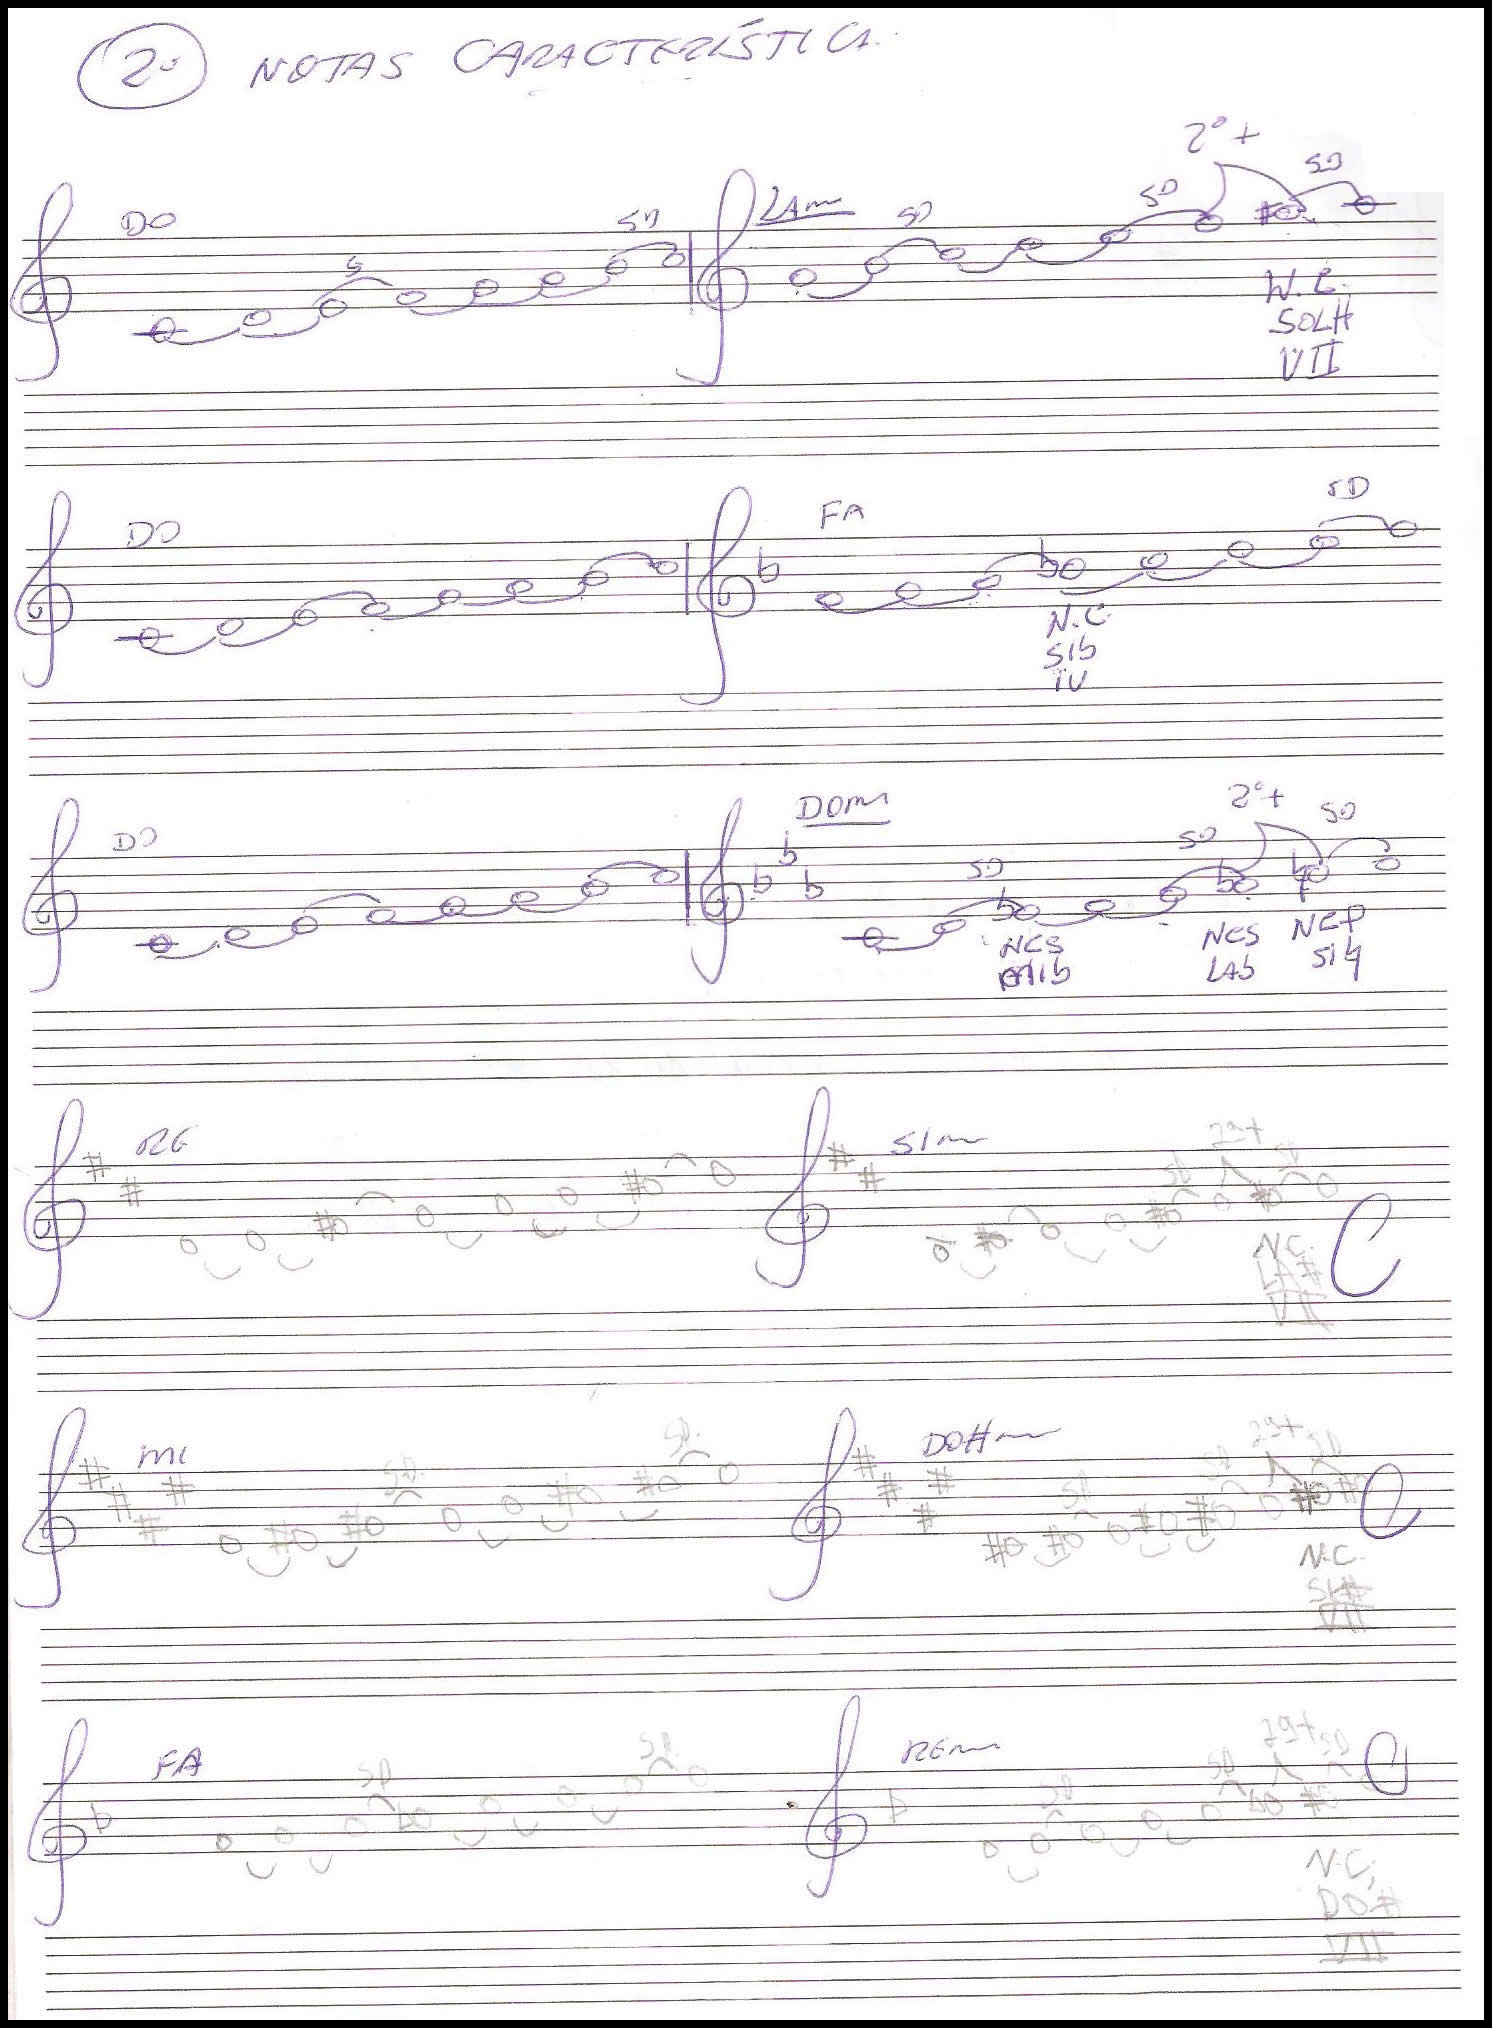 2º NOTAS CARACTERÍSTICA.
DO S SD LAm SD SD 2º+ SD
N.C.
SOL#
VII
DO FA SD
N.C.
SIb
IV
DO DOm SD SD 2º+ SD
NCS NCS NCP
MIb LAb SI♮
RE SIm SD 2ª+ SD
N.C.
LA#
VII
MI SD. SD. DO#m SD SD 2ª+ SD
N.C.
SI#
VII
FA SD SD. REm SD SD 2ª+ SD
N.C.
DO#
VII